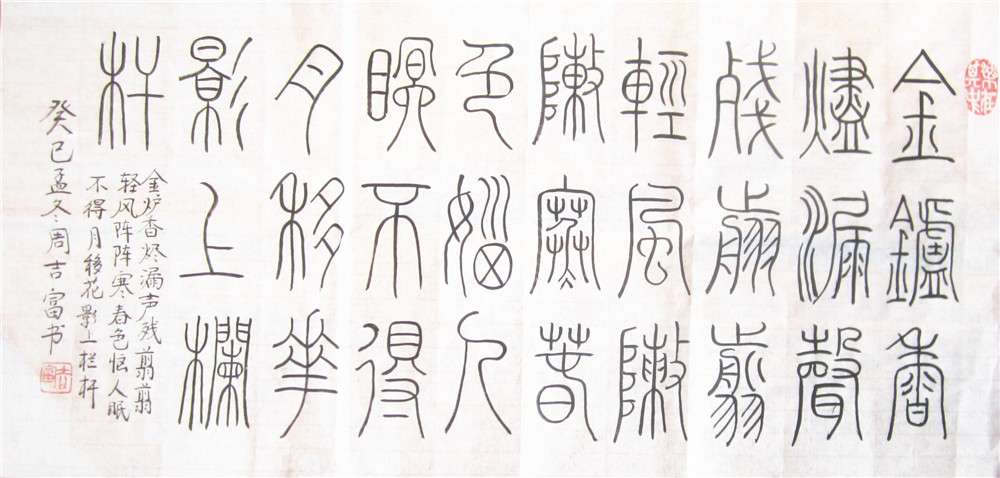 金鑪香
燼漏聲
殘翦翦
輕風陣
陣寒春
色惱人
瞑不得
月移華
影上欄
杆
金炉香烬漏声残翦翦
轻风阵阵寒春色恼人眠
不得月移花影上栏杆
癸巳孟冬周吉富书